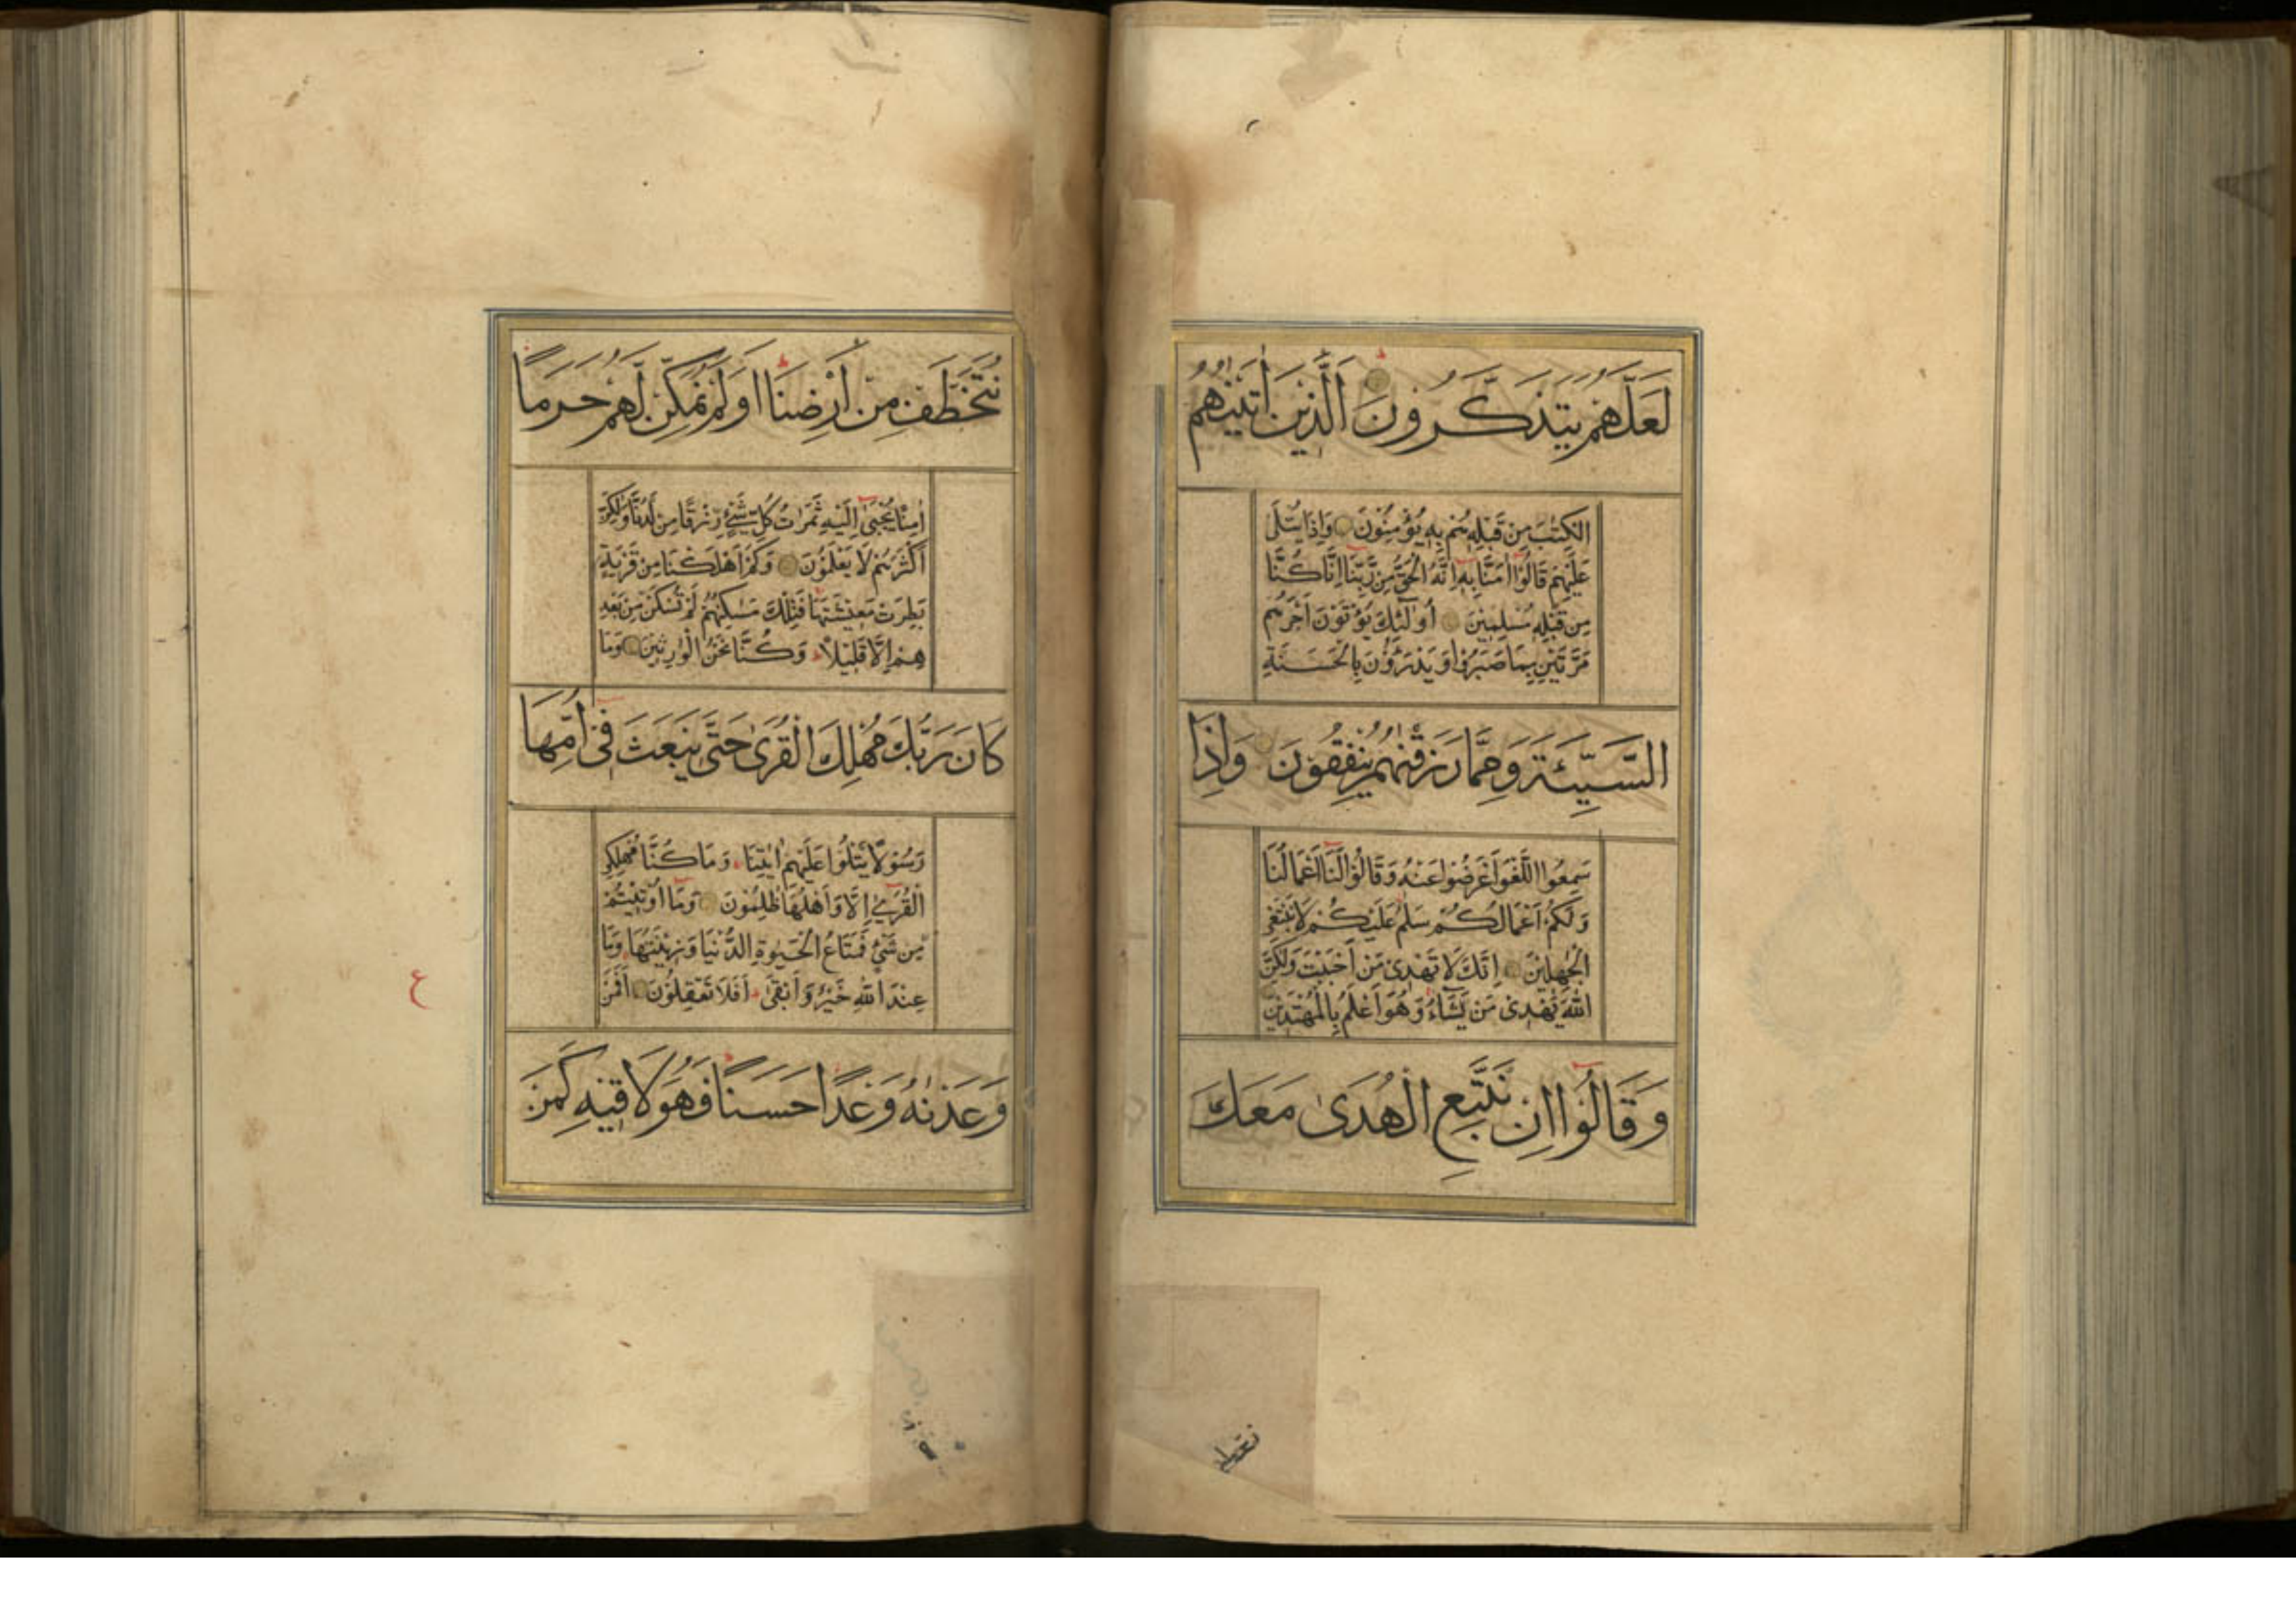 لَعَلَّهُمْ يَتَذَكَّرُونَ الَّذِينَ اٰتَيْنٰهُمُ
الْكِتٰبَ مِنْ قَبْلِهٖ هُمْ بِهٖ يُؤْمِنُونَ وَاِذَا يُتْلٰى
عَلَيْهِمْ قَالُوْا اٰمَنَّا بِهٖ اِنَّهُ الْحَقُّ مِنْ رَّبِّنَا اِنَّا كُنَّا
مِنْ قَبْلِهٖ مُسْلِمِيْنَ اُولٰٓئِكَ يُؤْتَوْنَ اَجْرَهُمْ
مَرَّتَيْنِ بِمَا صَبَرُوْا وَيَدْرَؤُنَ بِالْحَسَنَةِ
السَّيِّئَةَ وَمِمَّا رَزَقْنٰهُمْ يُنْفِقُوْنَ وَاِذَا
سَمِعُوا اللَّغْوَ اَعْرَضُوْا عَنْهُ وَقَالُوْا لَنَا اَعْمَالُنَا
وَلَكُمْ اَعْمَالُكُمْ سَلٰمٌ عَلَيْكُمْ لَا نَبْتَغِي
الْجٰهِلِيْنَ اِنَّكَ لَا تَهْدِيْ مَنْ اَحْبَبْتَ وَلٰكِنَّ
اللّٰهَ يَهْدِيْ مَنْ يَّشَآءُ وَهُوَ اَعْلَمُ بِالْمُهْتَدِيْنَ
وَقَالُوْا اِنْ نَتَّبِعِ الْهُدٰى مَعَكَ
نُتَخَطَّفْ مِنْ اَرْضِنَا اَوَلَمْ نُمَكِّنْ لَّهُمْ حَرَمًا
اٰمِنًا يُّجْبٰى اِلَيْهِ ثَمَرٰتُ كُلِّ شَيْءٍ رِّزْقًا مِنْ لَّدُنَّا وَلٰكِنَّ
اَكْثَرَهُمْ لَا يَعْلَمُوْنَ وَكَمْ اَهْلَكْنَا مِنْ قَرْيَةٍ
بَطِرَتْ مَعِيْشَتَهَا فَتِلْكَ مَسٰكِنُهُمْ لَمْ تُسْكَنْ مِنْ بَعْدِ
هِمْ اِلَّا قَلِيْلًا وَكُنَّا نَحْنُ الْوٰرِثِيْنَ وَمَا
كَانَ رَبُّكَ مُهْلِكَ الْقُرٰى حَتّٰى يَبْعَثَ فِيْ اُمِّهَا
رَسُوْلًا يَتْلُوْا عَلَيْهِمْ اٰيٰتِنَا وَمَا كُنَّا مُهْلِكِي
الْقُرٰى اِلَّا وَاَهْلُهَا ظٰلِمُوْنَ وَمَا اُوْتِيْتُمْ
مِنْ شَيْءٍ فَمَتَاعُ الْحَيٰوةِ الدُّنْيَا وَزِيْنَتُهَا وَمَا
عِنْدَ اللّٰهِ خَيْرٌ وَاَبْقٰى اَفَلَا تَعْقِلُوْنَ اَفَمَنْ
وَعَدْنٰهُ وَعْدًا حَسَنًا فَهُوَ لَاقِيْهِ كَمَنْ
ع